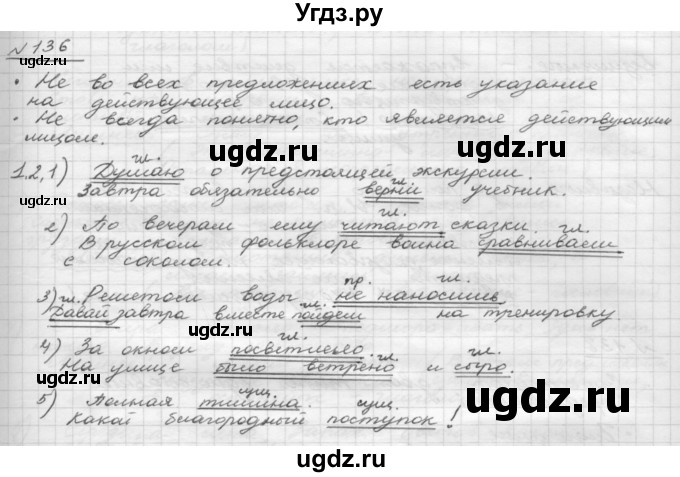 Угдз.ру
№136
• Не во всех предложениях есть указание
на действующее лицо.
• Не всегда понятно, кто является действующим
лицом.
ugdz.ru
гл.
1.2, 1) Думаю о предстоящей экскурсии.
гл.
Завтра обязательно верни учебник.
ugdz.ru
гл.
2) По вечерам ему читают сказки.
гл.
В русском фольклоре воина сравниваем
с соколом.
ugdz.ru
пр. гл.
3) Решетом воды не наносишь.
гл. гл.
Давай завтра вместе пойдем на тренировку.
ugdz.ru
гл.
4) За окном посветлело.
гл. гл.
На улице было ветрено и сыро.
ugdz.ru
сущ.
5) Полная тишина.
сущ.
Какой благородный поступок!
ugdz.ru
ugdz.ru
ugdz.ru